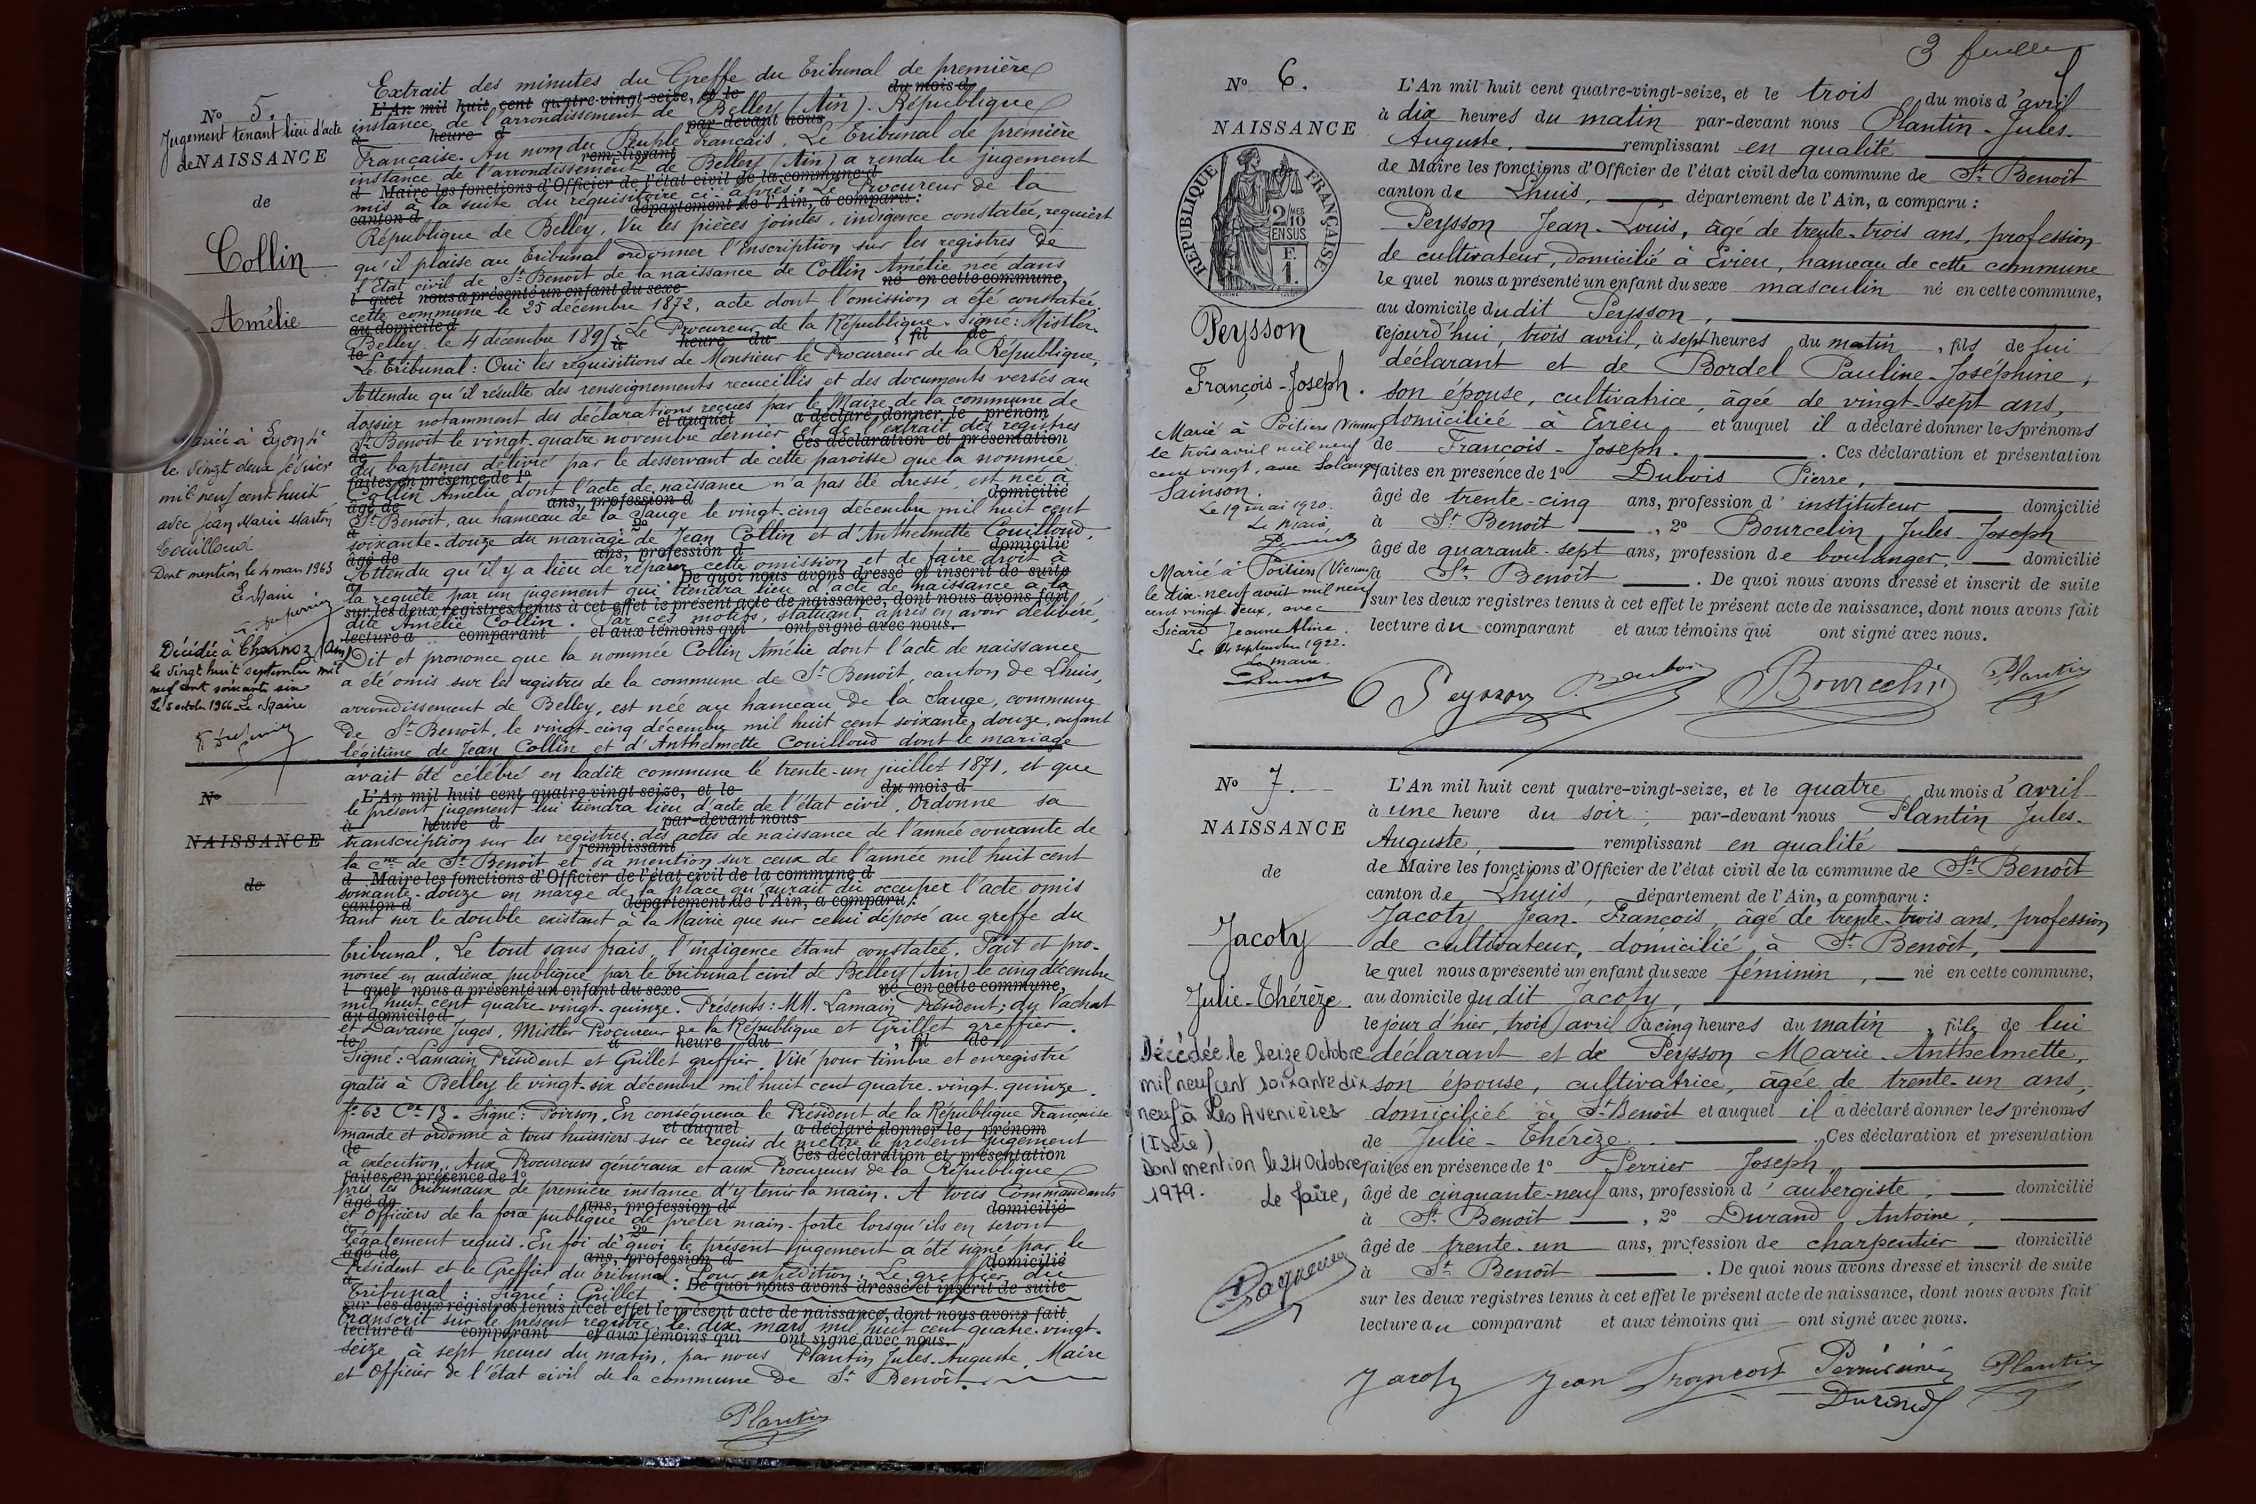 Extrait des minutes du Greffe du Tribunal de première
L'An mil huit cent quatre-vingt-seize, et le du mois d
N° 5.
instance de l'arrondissement de Belley (Ain). République
à heure d par-devant nous
Jugement tenant lieu d'acte
de NAISSANCE
Française. Au nom du Peuple Français. Le Tribunal de première
remplissant
instance de l'arrondissement de Belley (Ain) a rendu le jugement
d Maire les fonctions d'Officier de l'état civil de la commune d
mis à la suite du réquisitoire ci après: Le Procureur de la
canton d département de l'Ain, a comparu:
de
Collin
Amélie
République de Belley, Vu les pièces jointes, indigence constatée, requiert
qu'il plaise au Tribunal ordonner l'inscription sur les registres de
l'État civil de St Benoît de la naissance de Collin Amélie née dans
l quel nous a présenté un enfant du sexe né en cette commune,
cette commune le 25 décembre 1872, acte dont l'omission a été constatée
au domicile d
Belley le 4 décembre 1895. Le Procureur de la République. Signé: Mistler
le à heure du , fil de
Le Tribunal: Ouï les réquisitions de Monsieur le Procureur de la République,
Attendu qu'il résulte des renseignements recueillis et des documents versés au
dossier notamment des déclarations reçues par le Maire de la commune de
et auquel a déclaré donner le prénom
St Benoît le vingt-quatre novembre dernier et de l'extrait des registres
de Ces déclaration et présentation
du baptêmes délivré par le desservant de cette paroisse que la nommée
faites en présence de 1°
Collin Amélie, dont l'acte de naissance n'a pas été dressé, est née à
âgé de ans, profession d domicilié
St Benoît, au hameau de la Sauge le vingt-cinq décembre mil huit cent
à 2°
soixante-douze du mariage de Jean Collin et d'Anthelmette Couilloud,
âgé de ans, profession d domicilié
Attendu qu'il y a lieu de réparer cette omission et de faire droit à
à De quoi nous avons dressé et inscrit de suite
la requête par un jugement qui tiendra lieu d'acte de naissance à la
sur les deux registres tenus à cet effet le présent acte de naissance, dont nous avons fait
dite Amélie Collin. Par ces motifs, statuant après en avoir délibéré,
lecture a comparant et aux témoins qui ont signé avec nous.
Dit et prononce que la nommée Collin Amélie dont l'acte de naissance
a été omis sur les registres de la commune de St Benoît, canton de Lhuis,
arrondissement de Belley, est née au hameau de la Sauge, commune
de St Benoît, le vingt-cinq décembre mil huit cent soixante, douze, enfant
légitime de Jean Collin et d'Anthelmette Couilloud dont le mariage
le vingt deux février
mil neuf cent huit
avec Jean Marie Marton
Couilloud
Dont mention le 4 mars 1963
Le Maire
Décédée à Charnoz (Ain)
le vingt huit septembre mil
neuf cent soixante six
Le 5 octobre 1966 Le Maire
avait été célébré en ladite commune le trente-un juillet 1871, et que
N°
L'An mil huit cent quatre-vingt-seize, et le du mois d
le présent jugement lui tiendra lieu d'acte de l'état civil. Ordonne sa
à heure d par-devant nous
NAISSANCE
transcription sur les registres des actes de naissance de l'année courante de
remplissant
la cne de St Benoît et sa mention sur ceux de l'année mil huit cent
de
d Maire les fonctions d'Officier de l'état civil de la commune d
soixante-douze en marge de la place qu'aurait dû occuper l'acte omis
canton d département de l'Ain, a comparu:
tant sur le double existant à la Mairie que sur celui déposé au greffe du
Tribunal. Le tout sans frais, l'indigence étant constatée. Fait et pro-
noncé en audience publique par le Tribunal civil de Belley (Ain) le cinq décembre
l quel nous a présenté un enfant du sexe né en cette commune,
mil huit cent quatre-vingt-quinze. Présents: MM. Lamain Président; du Vachat
au domicile d
et Davaine Juges, Mistler Procureur de la République et Grillet greffier.
le à heure du , fil de
Signé: Lamain Président et Grillet greffier. Visé pour timbre et enregistré
gratis à Belley le vingt-six décembre mil huit cent quatre-vingt-quinze.
f° 62 Ce 13. Signé: Poirson. En conséquence le Président de la République Française
et auquel a déclaré donner le prénom
mande et ordonne à tous huissiers sur ce requis de mettre le présent jugement
de Ces déclaration et présentation
à exécution, Aux Procureurs généraux et aux Procureurs de la République
faites en présence de 1°
près les Tribunaux de première instance d'y tenir la main. A tous Commandants
âgé de ans, profession d domicilié
et Officiers de la force publique de prêter main-forte lorsqu'ils en seront
à 2°
légalement requis. En foi de quoi le présent jugement a été signé par le
âgé de ans, profession d domicilié
Président et le Greffier du Tribunal. Pour expédition. Le greffier du
à De quoi nous avons dressé et inscrit de suite
Tribunal: Signé: Grillet
sur les deux registres tenus à cet effet le présent acte de naissance, dont nous avons fait
Transcrit sur le présent registre le dix mars mil huit cent quatre-vingt-
lecture a comparant et aux témoins qui ont signé avec nous.
seize à sept heures du matin, par nous Plantin Jules-Auguste, Maire
et Officier de l'état civil de la commune de St Benoît.
Plantin
N° 6.
NAISSANCE
RÉPUBLIQUE FRANÇAISE
2/10 MES
EN SUS
F.
1.
Peysson
François-Joseph.
L'An mil huit cent quatre-vingt-seize, et le trois du mois d'avril
à dix heures du matin par-devant nous Plantin-Jules-
Auguste, remplissant en qualité
de Maire les fonctions d'Officier de l'état civil de la commune de St Benoît
canton de Lhuis, département de l'Ain, a comparu:
Peysson Jean-Louis, âgé de trente-trois ans, profession
de cultivateur, domicilié à Evieu, hameau de cette commune
le quel nous a présenté un enfant du sexe masculin né en cette commune,
au domicile dudit Peysson,
cejourd'hui, trois avril, à sept heures du matin, fils de lui
déclarant et de Bordel Pauline-Joséphine,
son épouse, cultivatrice, âgée de vingt-sept ans,
domiciliée à Evieu et auquel il a déclaré donner les prénoms
de François-Joseph. . Ces déclaration et présentation
faites en présence de 1° Dubois Pierre,
âgé de trente-cinq ans, profession d'instituteur domicilié
à St Benoît , 2° Bourcelin Jules-Joseph
âgé de quarante-sept ans, profession de boulanger, domicilié
à St Benoît . De quoi nous avons dressé et inscrit de suite
sur les deux registres tenus à cet effet le présent acte de naissance, dont nous avons fait
lecture au comparant et aux témoins qui ont signé avec nous.
Marié à Poitiers (Vienne)
le trois avril mil neuf
cent vingt, avec Solange
Sainson.
Le 19 mai 1920.
Le Maire
Marié à Poitiers (Vienne)
le dix-neuf août mil neuf
cent vingt-deux, avec
Sicard Jeanne Aline.
Le 14 septembre 1922.
Le maire.
Peysson Dubois Bourcelin Plantin
N° 7.
NAISSANCE
de
Jacoty
Julie-Thérèze.
L'An mil huit cent quatre-vingt-seize, et le quatre du mois d'avril
à une heure du soir, par-devant nous Plantin Jules-
Auguste, remplissant en qualité
de Maire les fonctions d'Officier de l'état civil de la commune de St Benoît
canton de Lhuis, département de l'Ain, a comparu:
Jacoty Jean-François, âgé de trente-trois ans, profession
de cultivateur, domicilié à St Benoît,
le quel nous a présenté un enfant du sexe féminin, né en cette commune,
au domicile dudit Jacoty,
le jour d'hier, trois avril à cinq heures du matin, fille de lui
déclarant et de Peysson Marie-Anthelmette,
son épouse, cultivatrice, âgée de trente-un ans,
domiciliée à St Benoît et auquel il a déclaré donner les prénoms
de Julie-Thérèze. . Ces déclaration et présentation
faites en présence de 1° Perrier Joseph,
âgé de cinquante-neuf ans, profession d'aubergiste, domicilié
à St Benoît , 2° Durand Antoine,
âgé de trente-un ans, profession de charpentier domicilié
à St Benoît . De quoi nous avons dressé et inscrit de suite
sur les deux registres tenus à cet effet le présent acte de naissance, dont nous avons fait
lecture au comparant et aux témoins qui ont signé avec nous.
Décédée le Seize Octobre
mil neuf cent soixante dix
neuf à Les Avenières
(Isère)
Dont mention le 24 Octobre
1979. Le Maire,
Jacoty Jean François Plantin
Durand